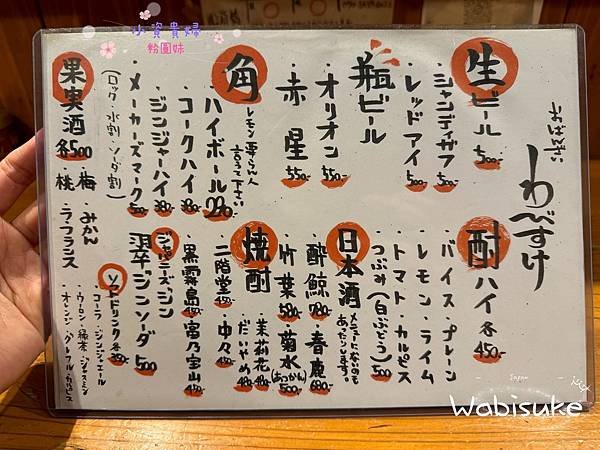 小資貴婦
粉圓妹
おばんざい
わびすけ
生ビール 500-
・シャンディガフ 500-
・レッドアイ 500-
瓶ビール
・オリオン 550-
・赤星 550-
角ハイボール
レモン要らん人
言って下さい
・コークハイ
・ジンジャーハイ
・メーカーズマーク
(ロック・水割・ソーダ割)
果実酒 各500
・梅
・桃
・みかん
・ラフランス
酎ハイ 各450-
・プレーン
・バイス
・ライム
・レモン
・カルピス
・トマト
・つぶみ(白ぶどう) 500
日本酒
メニューにないものも
あったりします。
・酔鯨 780-
・春鹿 680-
・竹葉 580-
・菊水(あつかん) 500-
焼酎
・茉莉花
・だいやめ
・二階堂 450-
・中々
・黒霧島 450-
・宮乃宝山
ジャパニーズジン
翠ジンソーダ 500
ソフトドリンク 各350
・コーラ・ジンジャエール
・ウーロン・緑茶・ジャスミン
・オレンジ・グレフル・カルピス
Japan
Wabisuke